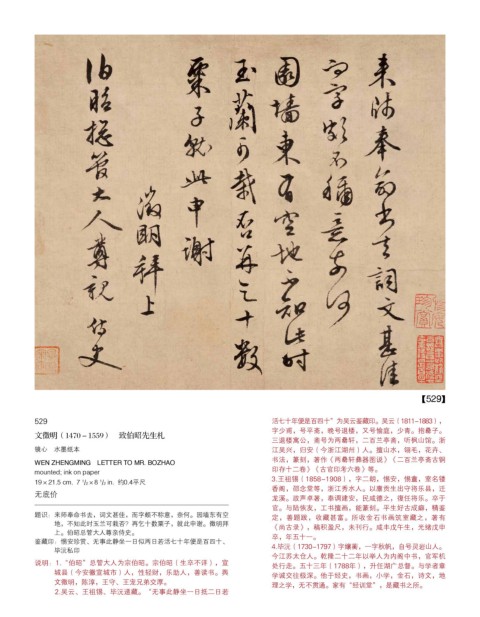 来帅奉命书去词文甚佳
而字颇不稱意奈何
園墙東有空地不知此时
玉蘭可栽否并乞十数
栗子就此申谢
徵明拜上
伯昭總管大人尊親侍史
【529】
529
文徵明(1470–1559) 致伯昭先生札
镜心 水墨纸本
WEN ZHENGMING LETTER TO MR. BOZHAO
mounted; ink on paper
19×21.5 cm. 7 1/2×8 1/2 in. 约0.4平尺
无底价
题识:来帅奉命书去,词文甚佳,而字颇不称意,奈何。园墙东有空
地,不知此时玉兰可栽否?再乞十数栗子,就此申谢。徵明拜
上,伯昭总管大人尊亲侍史。
鉴藏印:愙安珍赏、无事此静坐一日似两日若活七十年便是百四十、
毕沅私印
说明:1.“伯昭”总管大人为宗伯昭。宗伯昭(生卒不详),宣
城县(今安徽宣城市)人,性轻财,乐助人,善读书。与
文徵明、陈淳、王守、王宠兄弟交厚。
2.吴云、王祖锡、毕沅递藏。“无事此静坐一日抵二日若
活七十年便是百四十”为吴云鉴藏印。吴云(1811–1883),
字少甫,号平斋,晚号退楼,又号愉庭,少青。抱罍子。
三退楼寓公,斋号为两罍轩,二百兰亭斋,听枫山馆。浙
江吴兴,归安(今浙江湖州)人。擅山水,翎毛,花卉、
书法,篆刻,著作《两罍轩彝器图说》《二百兰亭斋古铜
印存十二卷》《古官印考六卷》等。
3.王祖锡(1858–1908),字二朗,愙安,惕斋,室名镂
香阁、邵念堂等,浙江秀水人。以廪贡生出守将乐县,迁
龙溪。迨声卓著,奉调建安,民咸德之,复任将乐。卒于
官。与陆恢友,工书擅画,能篆刻。平生好古成癖,精鉴
定,善题跋,收藏甚富。所收金石书画筑室藏之,著有
《尚古录》,稿积盈尺,未刊行。咸丰戊午生,光绪戊申
卒,年五十一。
4.毕沅(1730–1797)字纕蘅,一字秋帆,自号灵岩山人。
今江苏太仓人。乾隆二十二年以举人为内阁中书,官军机
处行走。五十三年(1788年),升任湖广总督。与学者章
学诚交往极深。他于经史,书画,小学,金石,诗文,地
理之学,无不贯通。家有“经训堂”,是藏书之所。